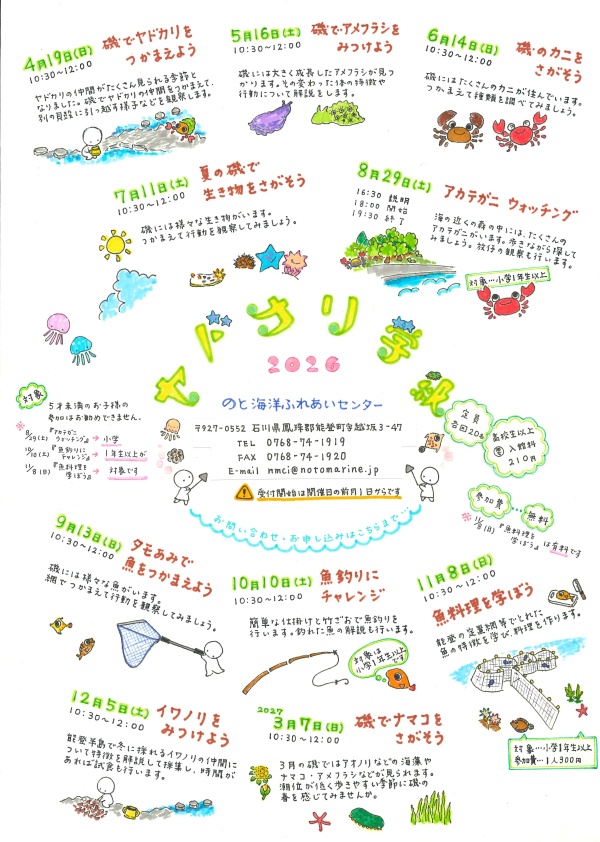 4月19日(日)
10:30~12:00
磯でヤドカリを
つかまえよう
ヤドカリの仲間がたくさん見られる季節と
なりました。磯でヤドカリの仲間をつかまえて、
別の貝殻に引っ越す様子などを観察します。
5月16日(土)
10:30~12:00
磯でアメフラシを
みつけよう
磯には大きく成長したアメフラシが見つ
かります。その変わった体の特徴や
行動について解説をします。
6月14日(日)
10:30~12:00
磯のカニを
さがそう
磯にはたくさんのカニが住んでいます。
つかまえて種類を調べてみましょう。
7月11日(土)
10:30~12:00
夏の磯で
生き物をさがそう
磯には様々な生き物がいます。
つかまえて行動を観察してみましょう。
8月29日(土)
16:30 説明
18:00 開始
19:30 終了
アカテガニ ウォッチング
海の近くの森の中には、たくさんの
アカテガニがいます。歩きながら探して
みましょう。放仔の観察も行います。
対象…小学1年生以上
ヤドカリ学級
2026
のと海洋ふれあいセンター
〒927-0552 石川県鳳珠郡能登町字越坂3-47
TEL 0768-74-1919
FAX 0768-74-1920
E-mail nmci@notomarine.jp
受付開始は開催日の前月1日からです
お問い合わせ・お申し込みはこちらまで…
対象
5才未満のお子様の
参加はお勧めできません。
8/29(土)『アカテガニ
ウォッチング』→小学
10/10(土)『魚釣りに
チャレンジ』→1年生以上が
11/8(日)『魚料理を
学ぼう』→対象です
定員
各回20名
高校生以上
要 入館料
210円
参加費……無料
※11/8(日)『魚料理を
学ぼう』は有料です
9月13日(日)
10:30~12:00
タモあみで
魚をつかまえよう
磯には様々な魚がいます。
網でつかまえて行動を観察してみましょう。
10月10日(土)
10:30~12:00
魚釣りに
チャレンジ
簡単な仕掛けと竹ざおで魚釣りを
行います。釣れた魚の解説も行います。
対象は
小学1年生以上
です
11月8日(日)
10:30~12:00
魚料理を学ぼう
能登の定置網等でとれた
魚の特徴を学び、料理を作ります。
対象…小学1年生以上
参加費…1人300円
12月5日(土)
10:30~12:00
イワノリを
みつけよう
能登半島で冬に採れるイワノリの仲間に
ついて特徴を解説して採集し、時間が
あれば試食も行います。
2027
3月7日(日)
10:30~12:00
磯でナマコを
さがそう
3月の磯ではアオノリなどの海藻や
ナマコ・アメフラシなどが見られます。
潮位が低く歩きやすい季節に磯の
春を感じてみませんか。